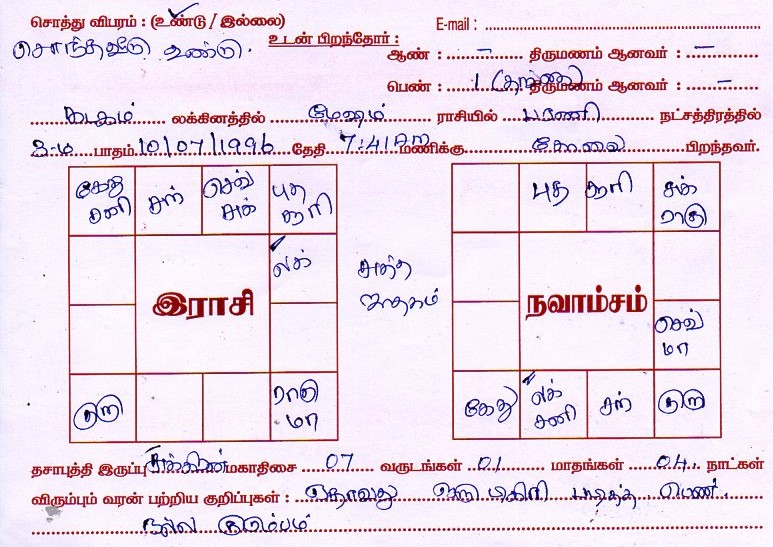 சொத்து விபரம் : (உண்டு / இல்லை)
E-mail :
சொந்தவீடு உண்டு.
உடன் பிறந்தோர் :
ஆண் : – திருமணம் ஆனவர் : –
பெண் : 1 திருமணம் ஆனவர் : –
கடகம் லக்கினத்தில் மேஷம் ராசியில் பரணி நட்சத்திரத்தில்
3-ம் பாதம் 10/07/1996 தேதி 7:41 AM மணிக்கு கோவை பிறந்தவர்.
கேது சனி
சந்
செவ் சுக்
புத சூரி
லக்
இராசி
குரு
ராகு மா
சுத்த ஜாதகம்
புத
சூரி
சுக் ராகு
நவாம்சம்
செவ் மா
கேது
லக் சனி
சந்
குரு
தசாபுத்தி இருப்பு சுக்கிரன் மகாதிசை 07 வருடங்கள் 01 மாதங்கள் 04 நாட்கள்
விரும்பும் வரன் பற்றிய குறிப்புகள் : ஏதாவது ஒரு டிகிரி படித்த பெண்.
நல்ல குடும்பம்